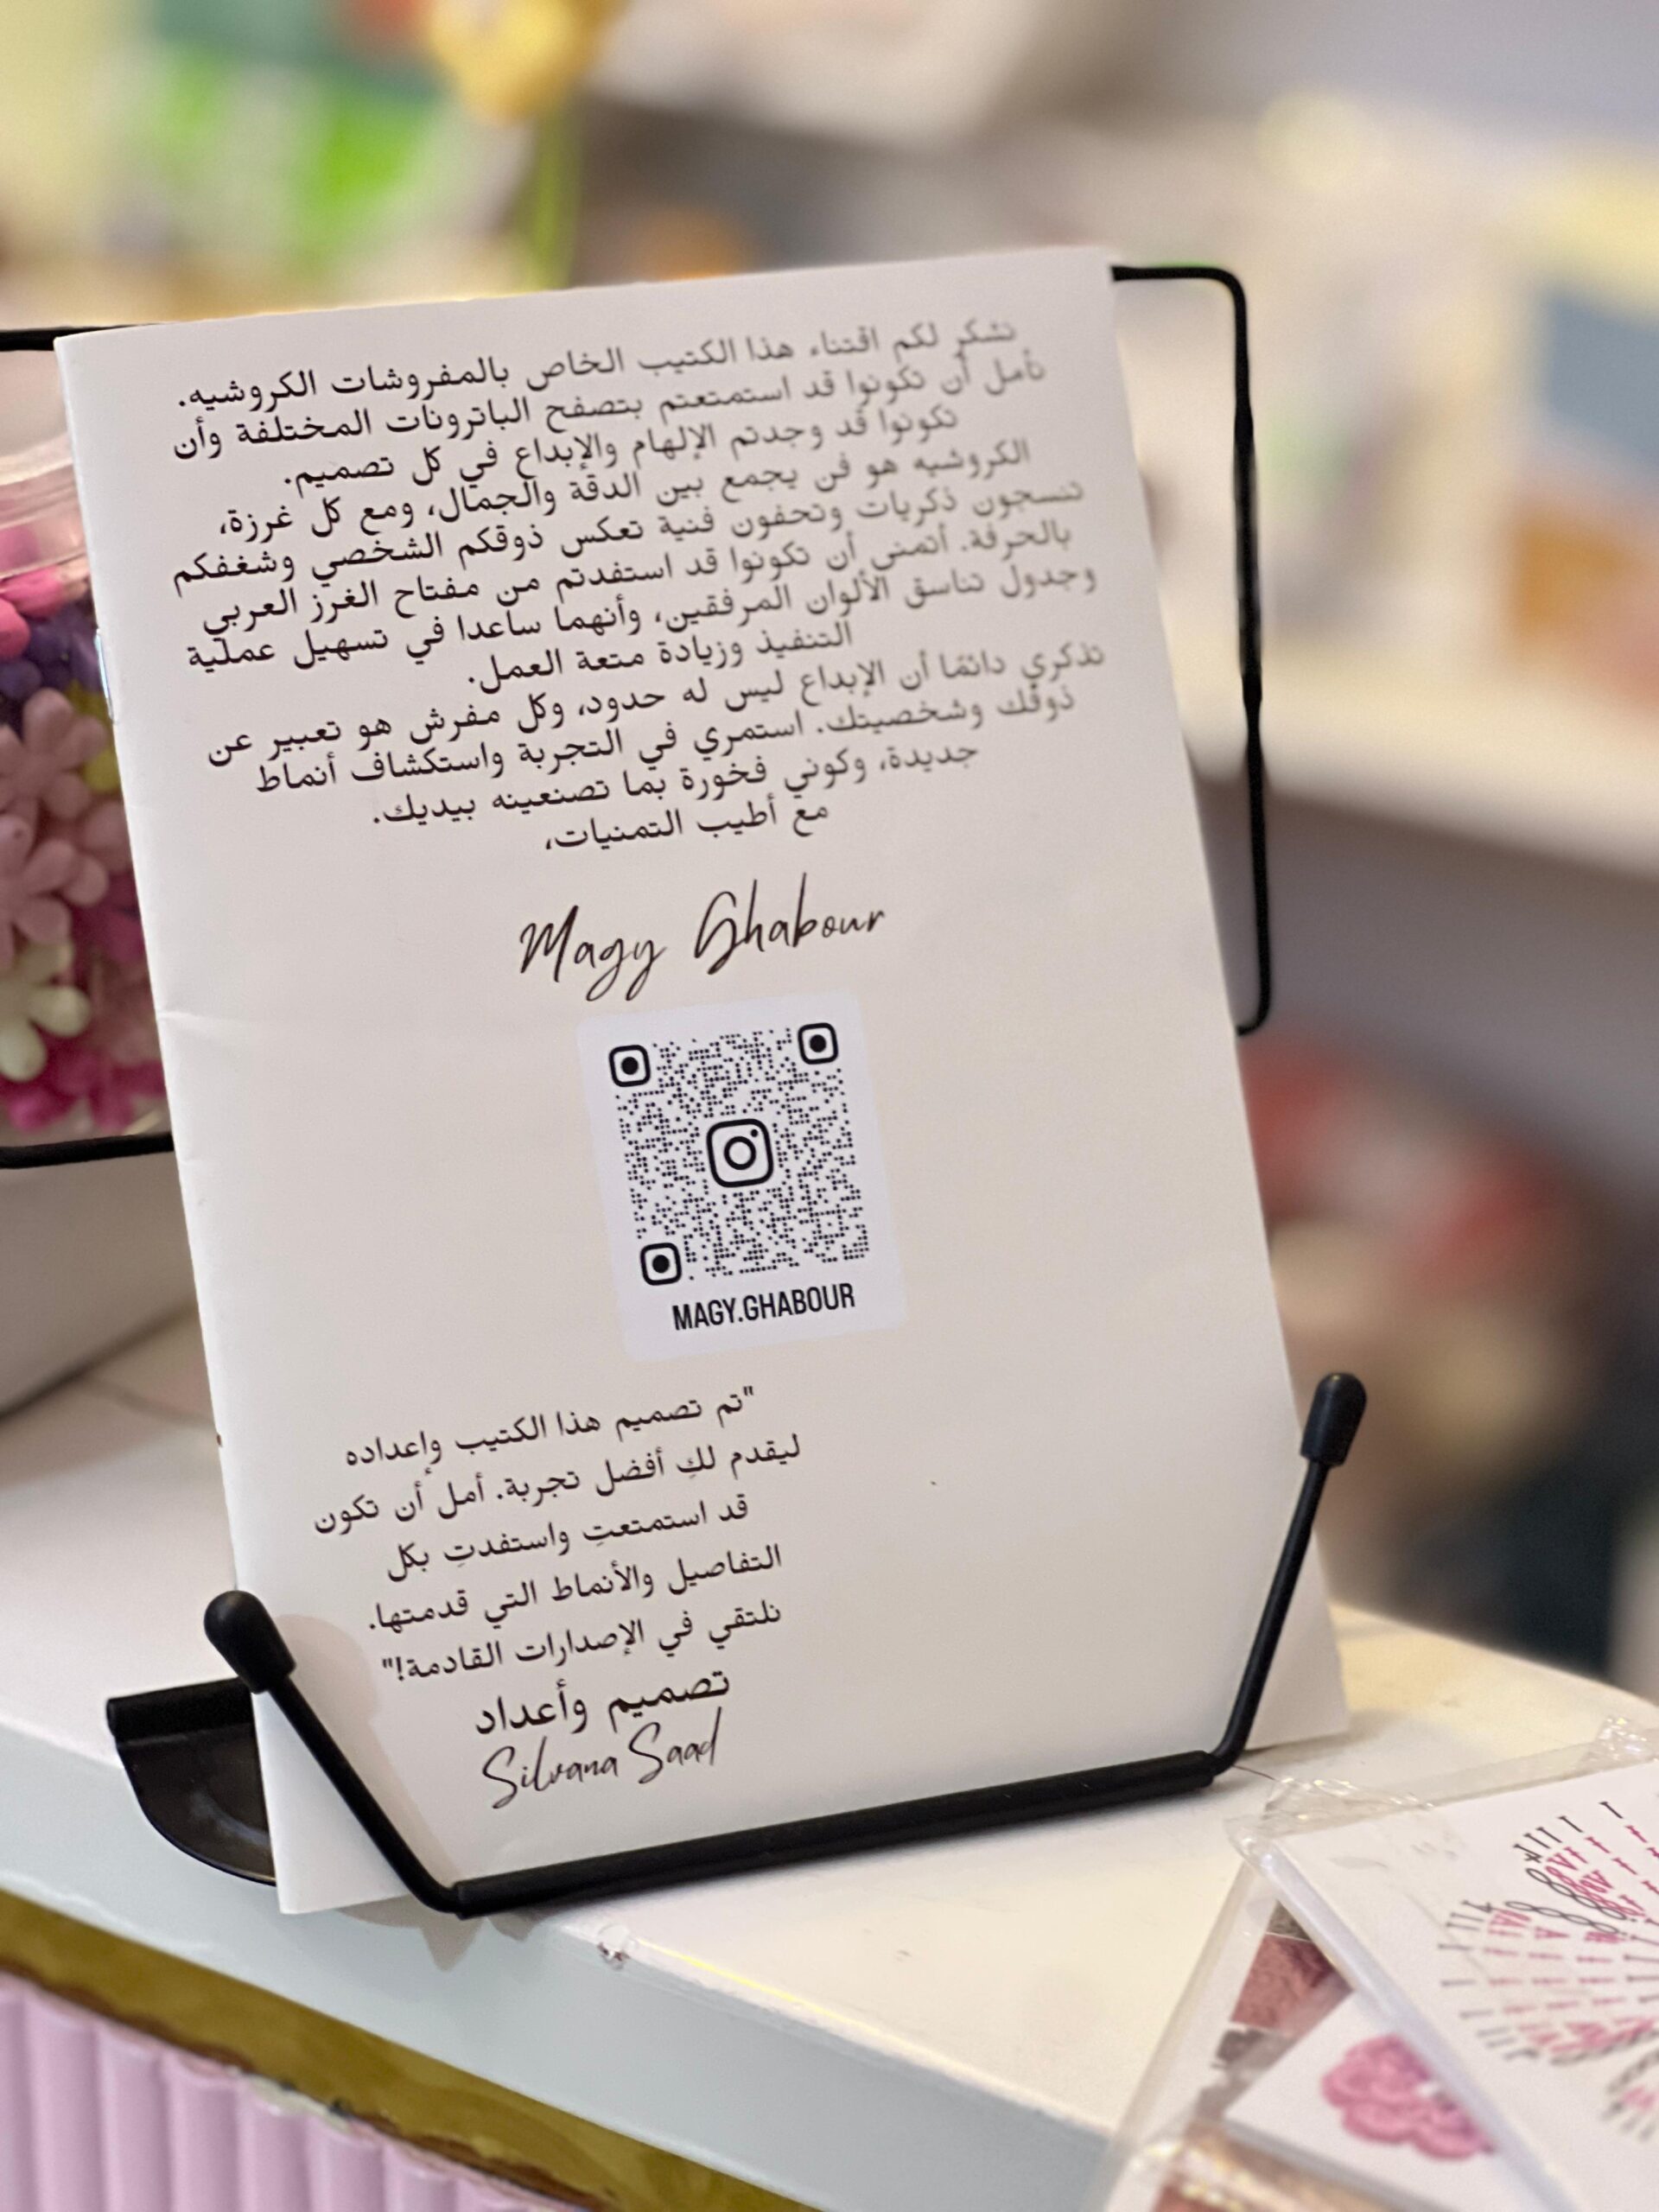 نشكر لكم اقتناء هذا الكتيب الخاص بالمفروشات الكروشيه.
نأمل أن تكونوا قد استمتعتم بتصفح الباترونات المختلفة وأن
تكونوا قد وجدتم الإلهام والإبداع في كل تصميم.
الكروشيه هو فن يجمع بين الدقة والجمال، ومع كل غرزة،
تنسجون ذكريات وتحفون فنية تعكس ذوقكم الشخصي وشغفكم
بالحرفة. أتمنى أن تكونوا قد استفدتم من مفتاح الغرز العربي
وجدول تناسق الألوان المرفقين، وأنهما ساعدا في تسهيل عملية
التنفيذ وزيادة متعة العمل.
تذكري دائمًا أن الإبداع ليس له حدود، وكل مفرش هو تعبير عن
ذوقك وشخصيتك. استمري في التجربة واستكشاف أنماط
جديدة، وكوني فخورة بما تصنعينه بيديك.
مع أطيب التمنيات،
Magy Ghabour
MAGY.GHABOUR
"تم تصميم هذا الكتيب وإعداده
ليقدم لكِ أفضل تجربة. أمل أن تكون
قد استمتعتِ واستفدتِ بكل
التفاصيل والأنماط التي قدمتها.
نلتقي في الإصدارات القادمة!"
تصميم وأعداد
Silvana Saad